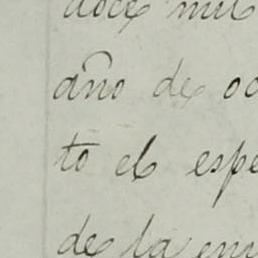 doce mil
año de oc
to el espe
de la en